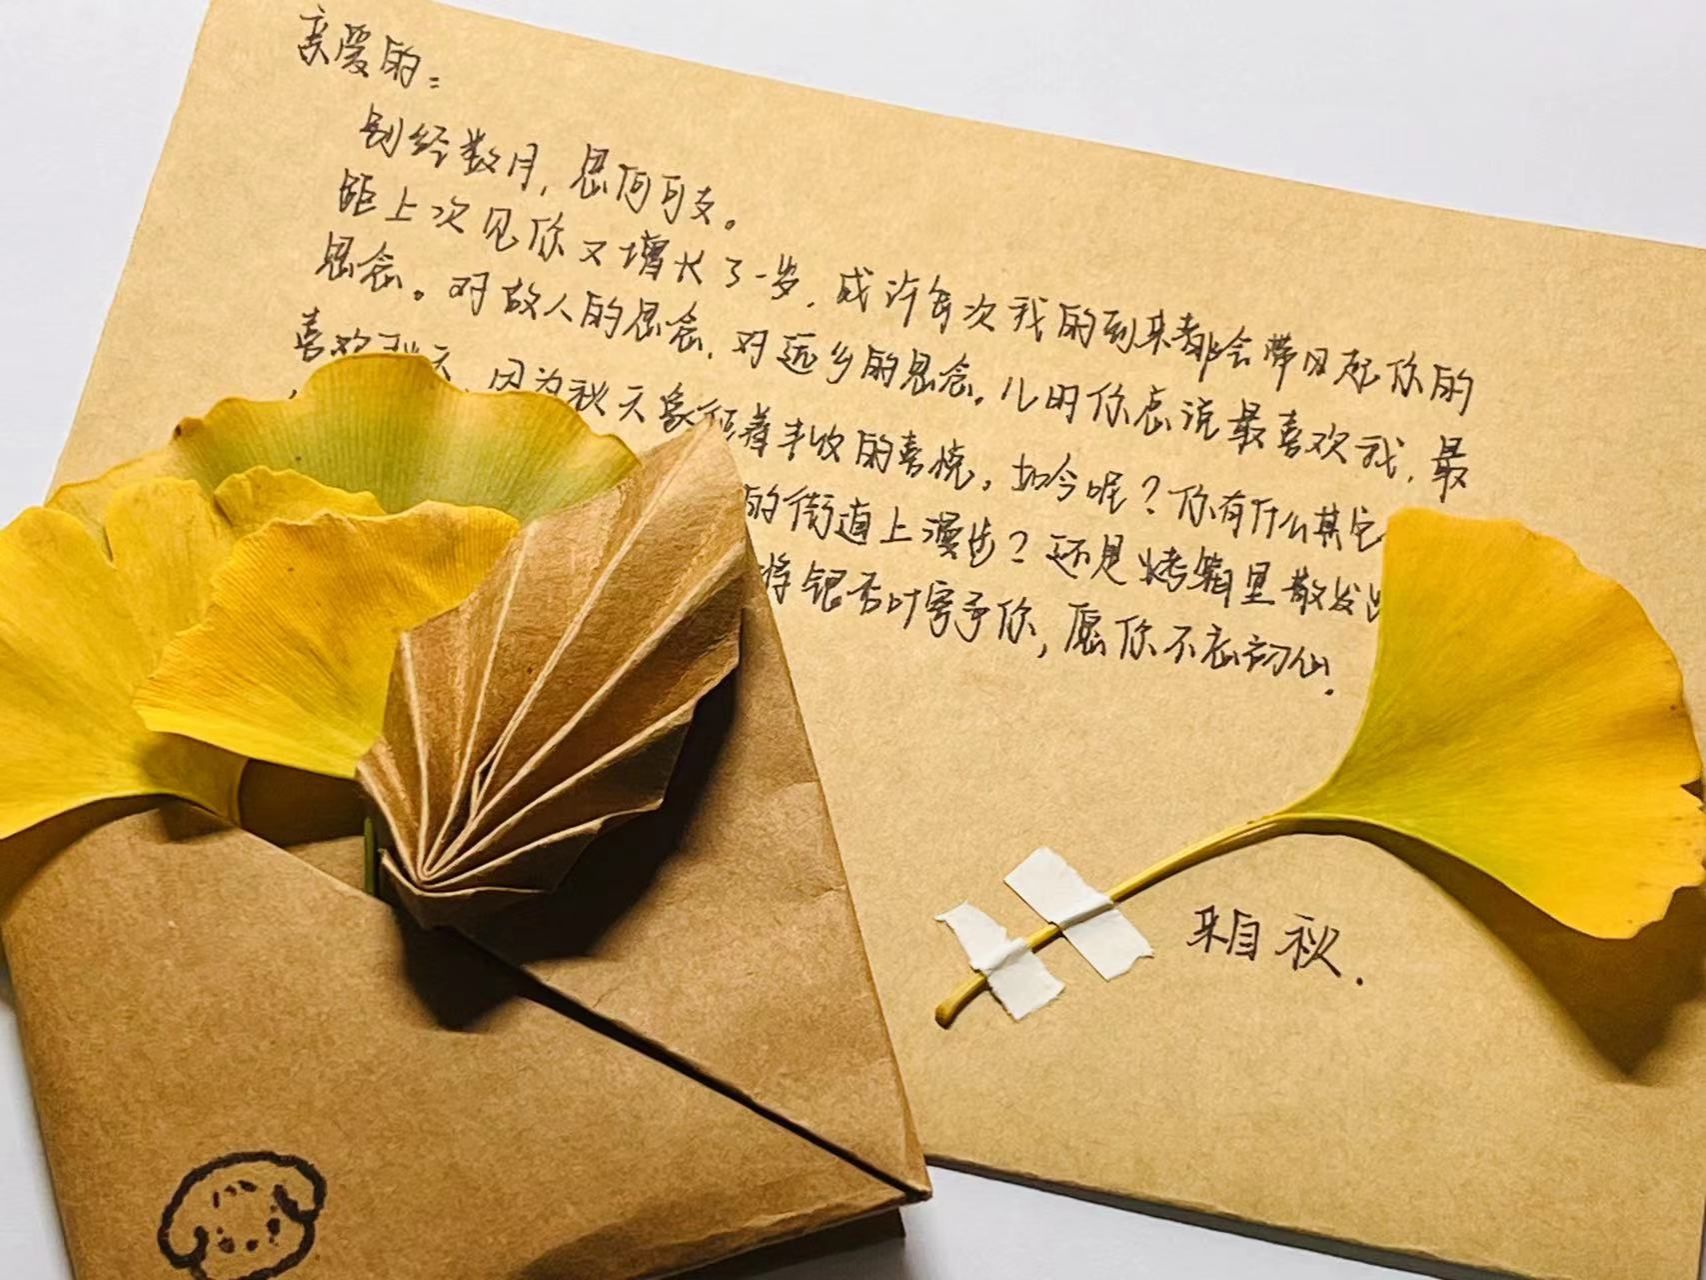 亲爱的:
别经数月,思何可支。
距上次见你又增长了一岁,或许每次我的到来都会带回起你的
思念。对故人的思念,对远乡的思念。儿时你总说最喜欢我,最
喜欢秋天,因为秋天象征着丰收的喜悦,如今呢?你有什么其它
的街道上漫步?还是烤箱里散发出
将银杏叶寄予你,愿你不忘初心.
来自秋.